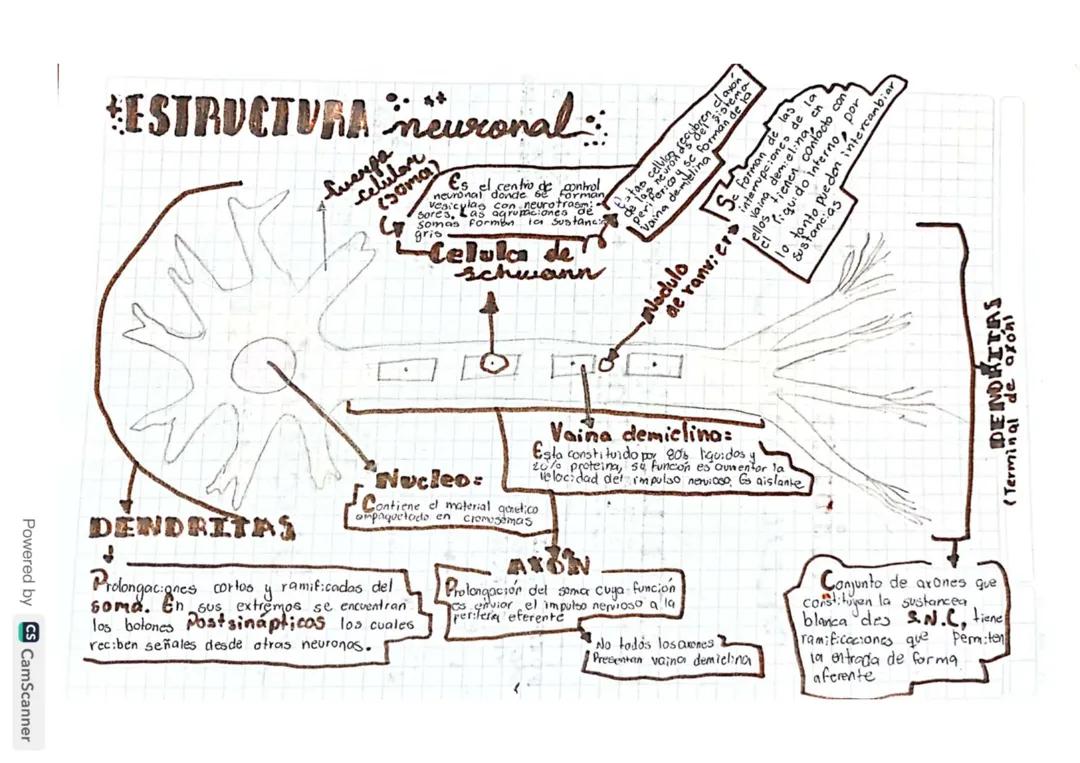 ESTRUCTURA neuronal
Cuerpo
celular
(soma)
Es el centro de control
neuronal donde se forman
vesiculas con neurotrasmi
sores. Las agrupaciones de
somas forman la sustancia
gris
Celula de
schwann
Estas celulas recubren el axón
de las neuronas del sistema
periferico y se forman de la
vaina demielina
Nodulo
de ranvier
Se forman de las
interrupciones de la
vaina demielina, en
ellos tienen contacto con
el liquido interno, por
lo tanto pueden intercambiar
sustancias
DENDRITAS
(Terminal de axón)
Vaina demielina:
Esta constituido por 80% liquidos y
20% proteina, su función es aumentar la
velocidad del impulso nervioso. Es aislante
Nucleo:
Contiene el material genetico
empaquetado en cromosomas
DENDRITAS
Prolongaciones cortas y ramificadas del
soma. En sus extremos se encuentran
los botones Postsinápticos los cuales
reciben señales desde otras neuronas.
AXÓN
Prolongación del soma cuya función
es enviar el impulso nervioso a la
periferia eferente
No todos los axones
Presentan vaina demielina
Conjunto de axones que
constituyen la sustancea
blanca des S.N.C, tiene
ramificaciones que permiten
la entrada de forma
aferente
Powered by CS CamScanner